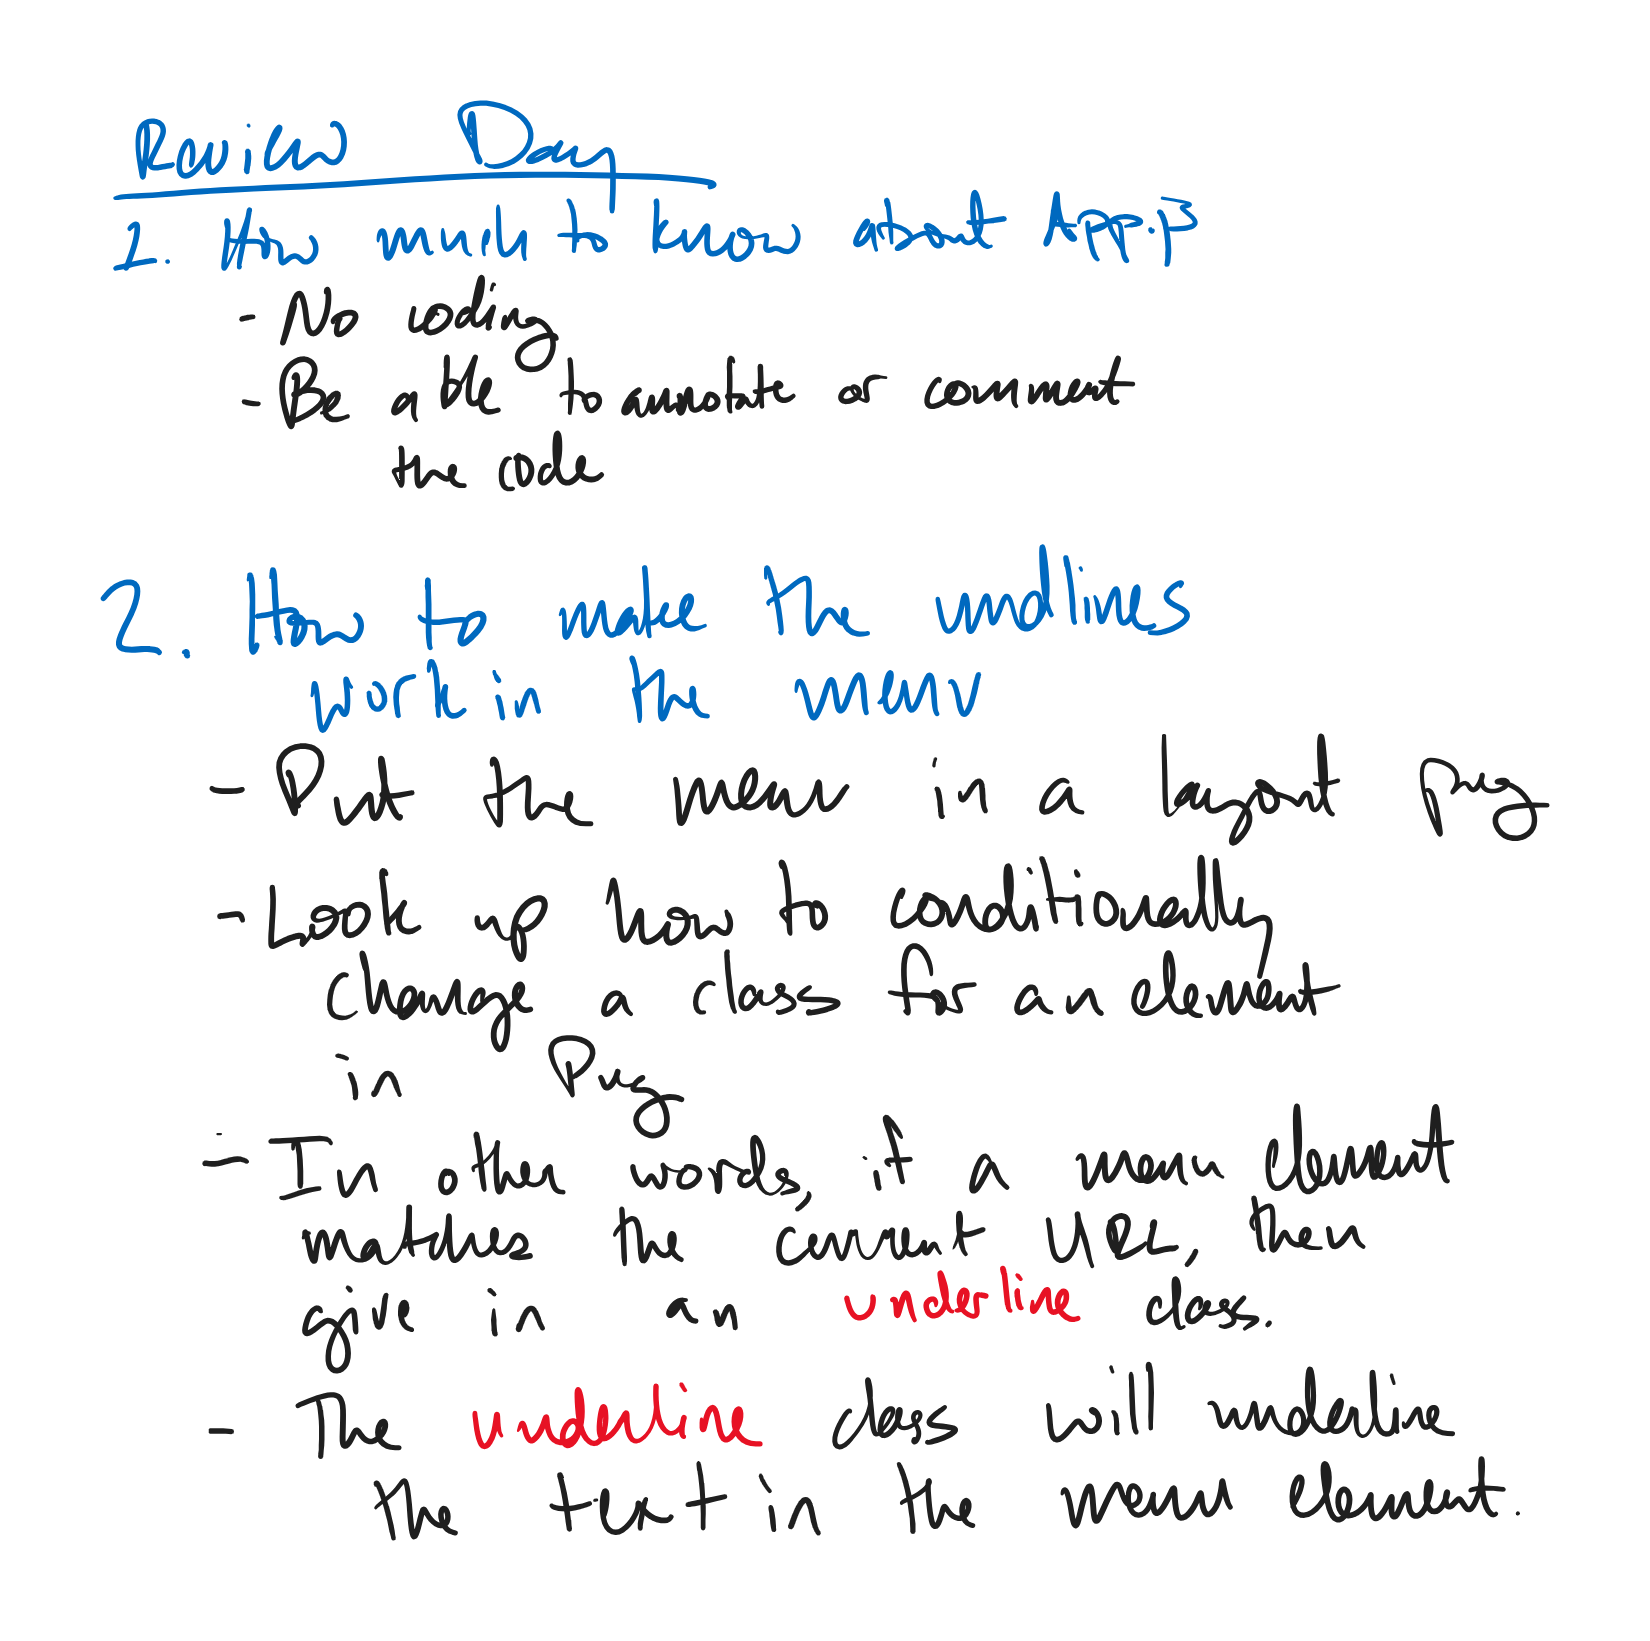 Review Day
1. How much to know about App.js
- No coding
- Be able to annotate or comment
the code
2. How to make the undlines
work in the menu
- Put the menu in a layout pug
- Look up how to conditionally
change a class for an element
in Pug
- In other words, if a menu element
matches the current URL, then
give in an underline class.
- The underline class will underline
the text in the menu element.